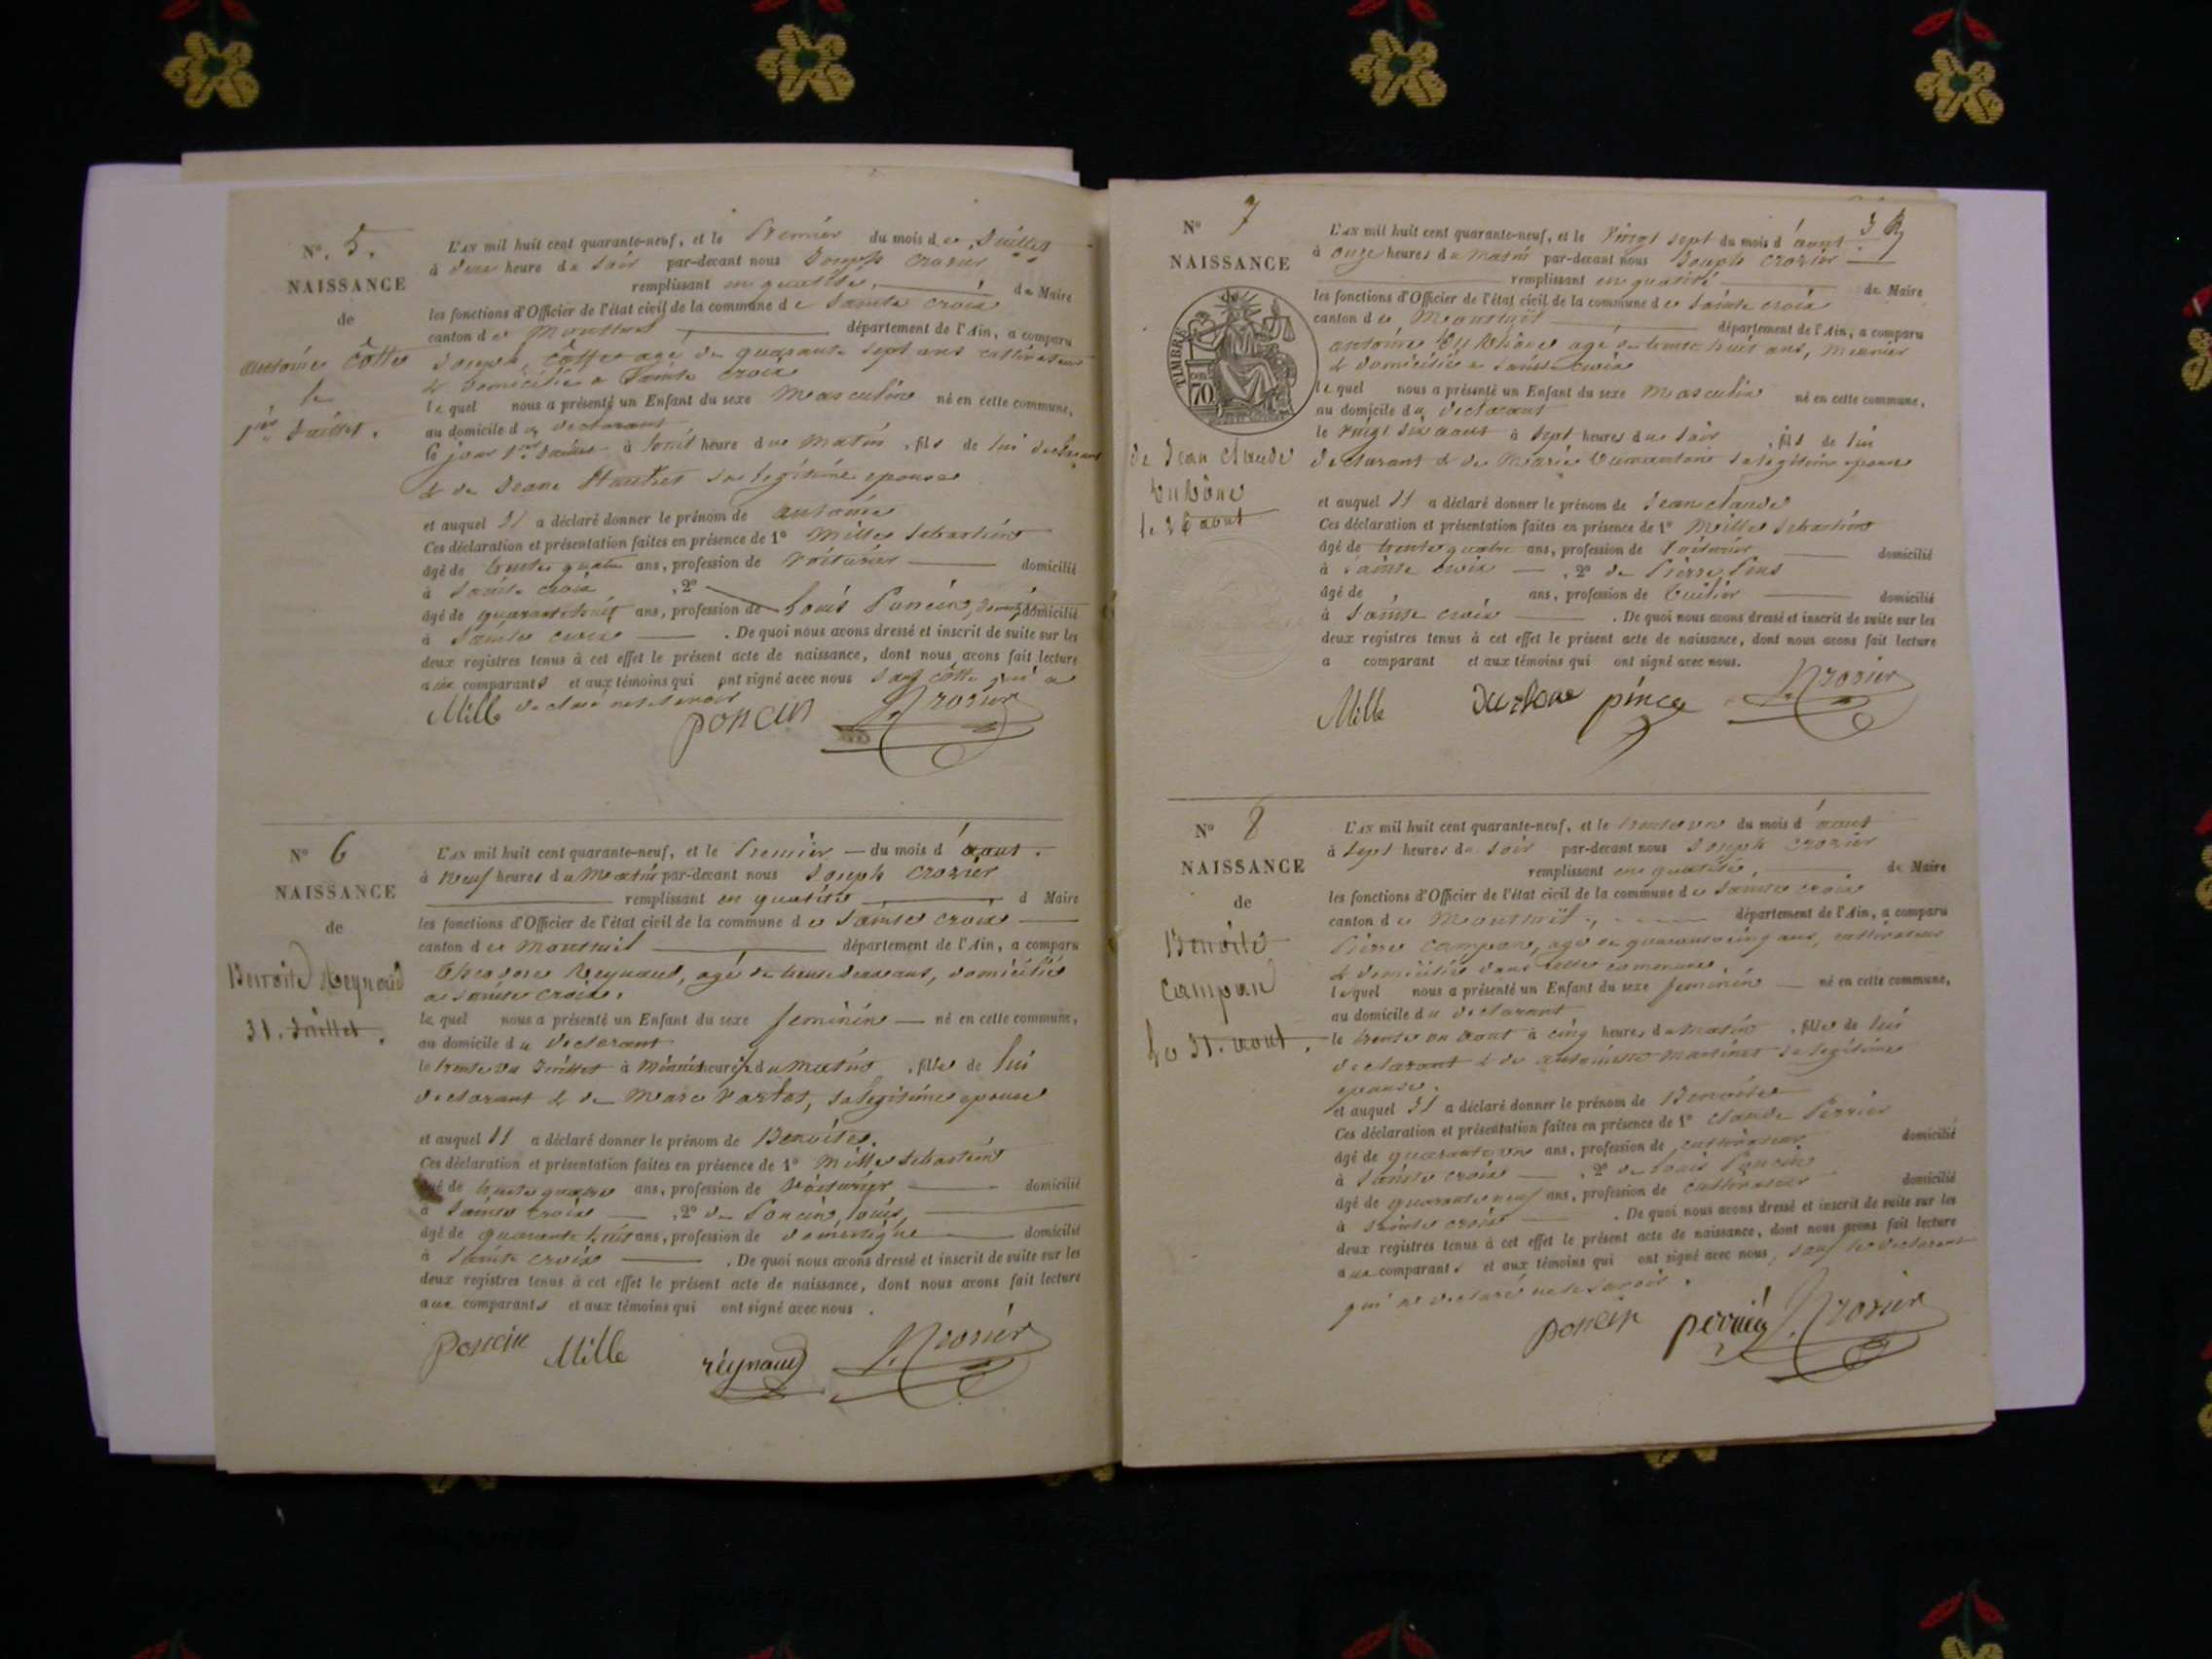 N° 5.
NAISSANCE
de
antoine Côtte
le
1er Juillet.
L'AN mil huit cent quarante-neuf, et le Premier du mois de Juillet
à deux heure du Soir par-devant nous Joseph Crozier
remplissant en qualité, de Maire
les fonctions d'Officier de l'état civil de la commune de Sainte croix
canton de Montluel département de l'Ain, a comparu
Joseph Côtte agé de quarante sept ans cultivateur
& domicilié a Sainte croix
lequel nous a présenté un Enfant du sexe Masculin né en cette commune,
au domicile du declarant
le jour 1er Juillet à heure du matin, fils de lui declarant
& de Jeane sa legitime epouse
et auquel Il a déclaré donner le prénom de antoine
Ces déclaration et présentation faites en présence de 1° Mille Sebastien
âgé de trente quatre ans, profession de Voiturier domicilié
à Sainte croix , 2°
âgé de quarante huit ans, profession de Louis Poncin, domicilié
à Sainte croix . De quoi nous avons dressé et inscrit de suite sur les
deux registres tenus à cet effet le présent acte de naissance, dont nous avons fait lecture
aux comparants et aux témoins qui ont signé avec nous Sauf Côtte qui a
declaré ne le savoir
Mille poncin Crozier
N° 6
NAISSANCE
de
Benoite Reynaud
31. Juillet.
L'AN mil huit cent quarante-neuf, et le Premier du mois d'aout.
à Neuf heures du Matin par-devant nous Joseph Crozier
remplissant en qualité d Maire
les fonctions d'Officier de l'état civil de la commune de Sainte croix
canton de Montluel département de l'Ain, a comparu
Reynaud, agé de trente deux ans, domicilié
a Sainte croix.
lequel nous a présenté un Enfant du sexe feminin né en cette commune,
au domicile du declarant
le trente un Juillet à Minuit heure du Matin, fille de lui
declarant & de Marie, sa legitime epouse
et auquel Il a déclaré donner le prénom de Benoite.
Ces déclaration et présentation faites en présence de 1° Mille Sebastien
âgé de trente quatre ans, profession de Voiturier domicilié
à Sainte croix , 2° de Poncin, louis,
âgé de quarante huit ans, profession de domestique domicilié
à Sainte croix . De quoi nous avons dressé et inscrit de suite sur les
deux registres tenus à cet effet le présent acte de naissance, dont nous avons fait lecture
aux comparants et aux témoins qui ont signé avec nous.
Poncin Mille réynaud Crozier
3
N° 7
NAISSANCE
de
TIMBRE
70
de Jean claude
le 26 aout
L'AN mil huit cent quarante-neuf, et le Vingt sept du mois d'aout
à onze heures du Matin par-devant nous Joseph Crozier
remplissant en qualité de Maire
les fonctions d'Officier de l'état civil de la commune de Sainte croix
canton de Montluel département de l'Ain, a comparu
antoine agé de trente huit ans, Meunier
& domicilié a Sainte croix
lequel nous a présenté un Enfant du sexe Masculin né en cette commune,
au domicile du declarant
le Vingt six aout à Sept heures du Soir, fils de lui
declarant & de Marie sa legitime epouse
et auquel Il a déclaré donner le prénom de Jean claude
Ces déclaration et présentation faites en présence de 1° Mille Sebastien
âgé de trente quatre ans, profession de Voiturier domicilié
à Sainte croix , 2° de Pierre
âgé de ans, profession de tuilier domicilié
à Sainte croix . De quoi nous avons dressé et inscrit de suite sur les
deux registres tenus à cet effet le présent acte de naissance, dont nous avons fait lecture
a comparant et aux témoins qui ont signé avec nous.
Mille Crozier
N° 8
NAISSANCE
de
Benoite
Campan
Le 31. aout.
L'AN mil huit cent quarante-neuf, et le trente un du mois d'aout
à Sept heures du Soir par-devant nous Joseph Crozier
remplissant en qualité, de Maire
les fonctions d'Officier de l'état civil de la commune de Sainte croix
canton de Montluel, département de l'Ain, a comparu
Pierre Campan, agé de quarante cinq ans, cultivateur
& domicilié dans cette commune,
lequel nous a présenté un Enfant du sexe feminin né en cette commune,
au domicile du declarant
le trente un aout à cinq heures du Matin, fille de lui
declarant & de antoinette Martinet sa legitime
epouse.
et auquel Il a déclaré donner le prénom de Benoite
Ces déclaration et présentation faites en présence de 1° Claude Perrier
âgé de quarante un ans, profession de cultivateur domicilié
à Sainte croix , 2° de Louis Poncin
âgé de quarante neuf ans, profession de cultivateur domicilié
à Sainte croix . De quoi nous avons dressé et inscrit de suite sur les
deux registres tenus à cet effet le présent acte de naissance, dont nous avons fait lecture
aux comparants et aux témoins qui ont signé avec nous, sauf le declarant
qui a declaré ne le savoir.
poncin perrier Crozier